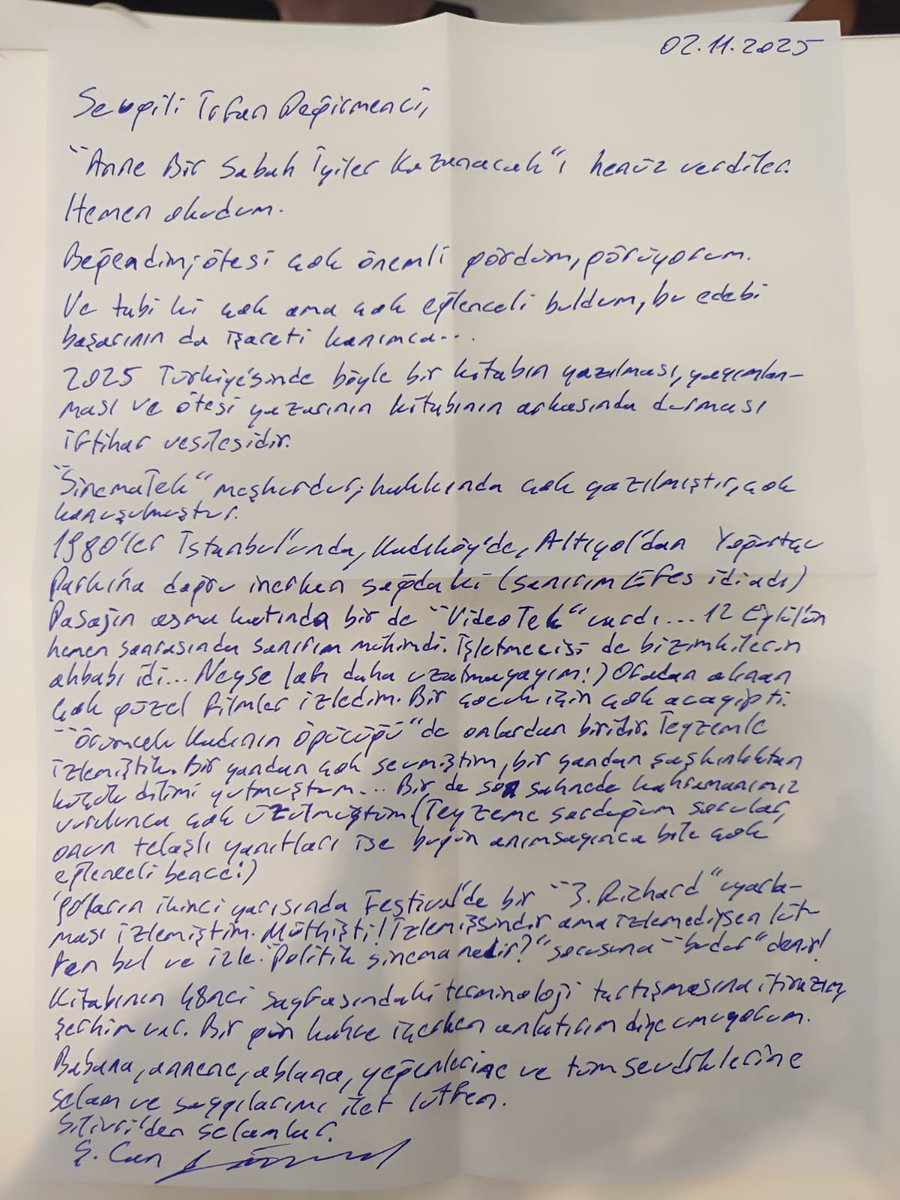 02.11.2025
Sevgili İrfan Değirmenci,
"Anne Bir Sabah İyiler Kazanacak"ı henüz verdiler.
Hemen okudum.
Beğendim; ötesi çok önemli gördüm, görüyorum.
Ve tabi ki çok ama çok eğlenceli buldum, bu edebi
başarının da işareti kanımca...
2025 Türkiye'sinde böyle bir kitabın yazılması, yayımlan-
ması ve ötesi yazarının kitabının arkasında durması
iftihar vesilesidir.
"SinemaTek" meşhurdur, hakkında çok yazılmıştır, çok
konuşulmuştur.
1980'ler İstanbul'unda, Kadıköy'de, Altıyol'dan Yoğurtçu
Parkına doğru inerken sağdaki (sanırım Efes idi adı)
Pasajın asma katında bir de "VideoTek" vardı... 12 Eylülün
hemen sonrasında sanırım mühimdi. İşletmecisi de bizimkilerin
ahbabı idi... Neyse lafı daha uzatmayayım!) Oradan alınan
çok güzel filmler izledim. Bir çocuk için çok acayipti.
"Örümcek Kadının Öpücüğü" de onlardan biridir. Teyzemle
izlemiştik. Bir yandan çok sevmiştim, bir yandan şaşkınlıktan
küçük dilimi yutmuştum... Bir de son sahnede kahramanımız
vurulunca çok üzülmüştüm (Teyzeme sorduğum sorular,
onun telaşlı yanıtları ise bugün anımsayınca bile çok
eğlenceli bence!)
'90'ların ikinci yarısında Festival'de bir "3. Richard" uyarla-
ması izlemiştim. Müthişti! İzlemişsindir ama izlemediysen lüt-
fen bul ve izle. "Politik sinema nedir?" sorusuna "budur" denir!
Kitabının sayfasındaki terminoloji tartışmasına itirazım,
şerhim var. Bir gün kahve içerken anlatırım diye umuyorum.
Babana, annene, ablana, yeğenlerine ve tüm sevdiklerine
selam ve saygılarımı ilet lütfen.
Silivri'den selamlar.
Ş. Can